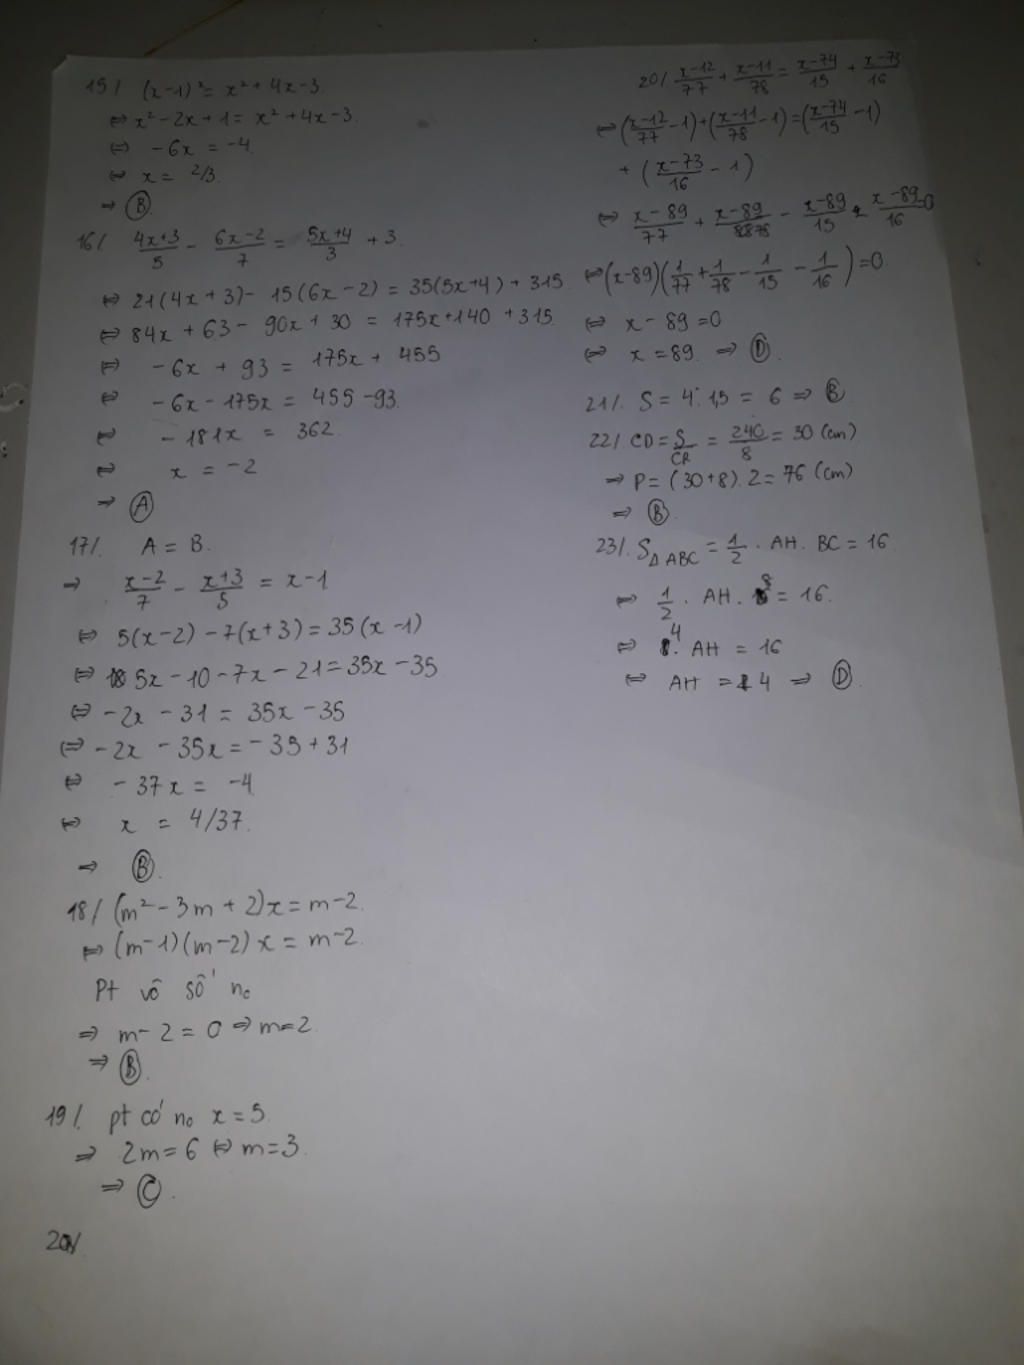 15/ (x-1)² = x² + 4x - 3.
⇔ x² - 2x + 1 = x² + 4x - 3.
⇔ -6x = -4.
⇔ x = 2/3.
→ Ⓑ.
16/. (4x+3)/5 - (6x-2)/7 = (5x+4)/3 + 3.
⇔ 21(4x+3) - 15(6x-2) = 35(5x+4) + 315.
⇔ 84x + 63 - 90x + 30 = 175x + 140 + 315.
⇔ -6x + 93 = 175x + 455
⇔ -6x - 175x = 455 - 93.
⇔ -181x = 362.
⇔ x = -2
→ Ⓐ
17/. A = B.
→ (x-2)/7 - (x+3)/5 = x - 1
⇔ 5(x-2) - 7(x+3) = 35(x-1)
⇔ 5x - 10 - 7x - 21 = 35x - 35
⇔ -2x - 31 = 35x - 35
⇔ -2x - 35x = -35 + 31
⇔ -37x = -4.
⇔ x = 4/37.
→ Ⓑ.
18/ (m² - 3m + 2)x = m - 2.
⇔ (m-1)(m-2)x = m-2.
Pt vô số no
⇒ m - 2 = 0 ⇒ m = 2.
⇒ Ⓑ.
19/. pt có no x = 5.
⇒ 2m = 6 ⇔ m = 3.
⇒ Ⓒ.
20/.
20/ (x-12)/77 + (x-11)/78 = (x-74)/15 + (x-73)/16
⇔ ((x-12)/77 - 1) + ((x-11)/78 - 1) = ((x-74)/15 - 1)
+ ((x-73)/16 - 1)
⇔ (x-89)/77 + (x-89)/78 - (x-89)/15 - (x-89)/16 = 0
⇔ (x-89)(1/77 + 1/78 - 1/15 - 1/16) = 0.
⇔ x - 89 = 0
⇔ x = 89. ⇒ Ⓓ.
21/. S = 4 . 1,5 = 6 ⇒ Ⓑ
22/. CD = S/CR = 240/8 = 30 (cm)
→ P = (30+8).2 = 76 (cm)
⇒ Ⓑ.
23/. S△ABC = 1/2 . AH . BC = 16.
⇔ 1/2 . AH . 8 = 16.
⇔ 4 . AH = 16
⇔ AH = 4 ⇒ Ⓓ.